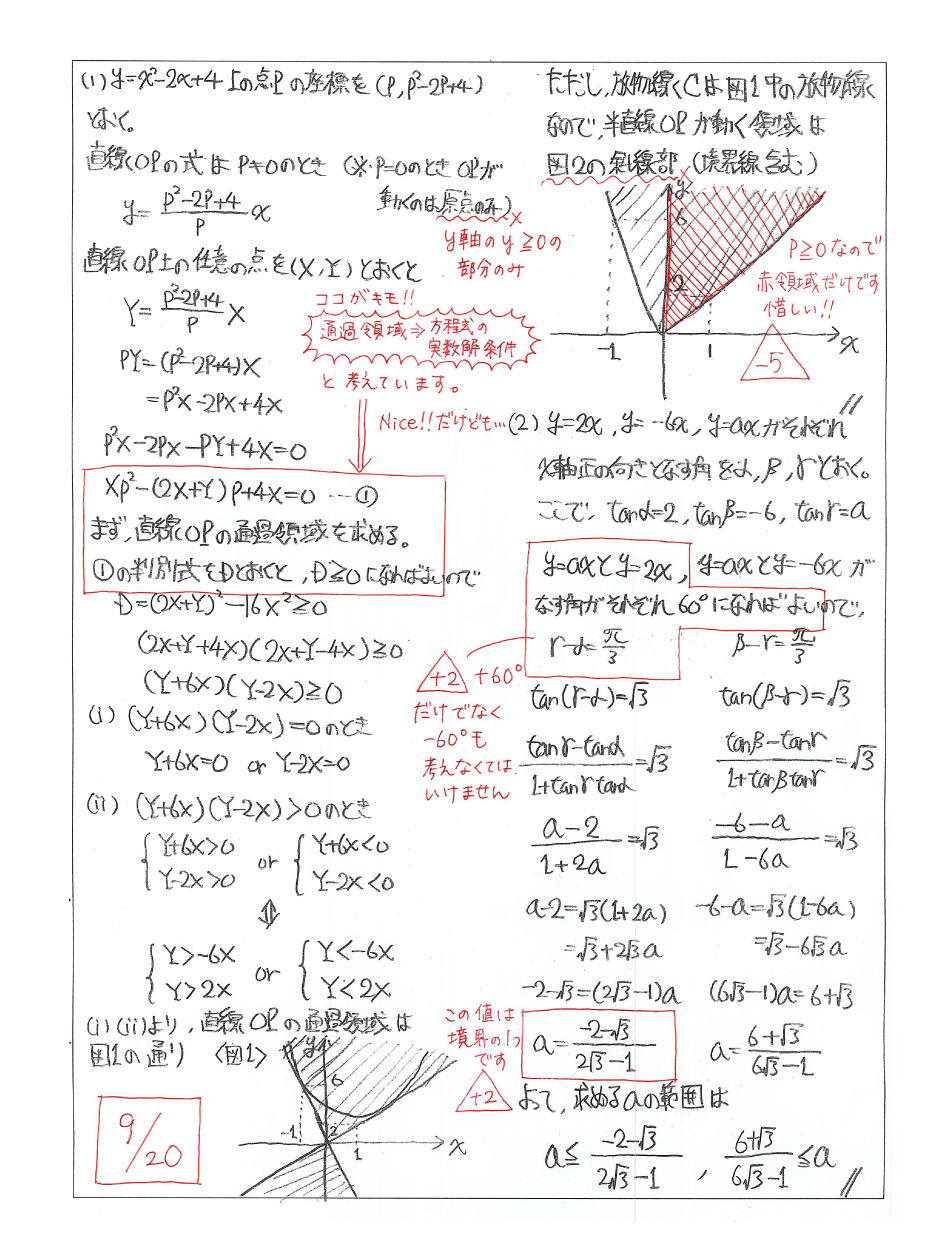 (1) y=x²-2x+4上の点Pの座標を(P, P²-2P+4)
とおく。
直線OPの式は P≠0のとき (※P=0のとき OPが
動くのは原点のみ)
y= (P²-2P+4)/P x
y軸のy≧0の
部分のみ
直線OP上の任意の点を(X,Y)とおくと
Y= (P²-2P+4)/P X
ココがキモ!!
通過領域⇒方程式の
実数解条件
と考えています。
PY=(P²-2P+4)X
=P²X-2PX+4X
P²X-2PX-PY+4X=0
Nice!!だけども…
XP²-(2X+Y)P+4X=0 …①
まず,直線OPの通過領域を求める。
①の判別式をDとおくと,D≧0になればよいので
D=(2X+Y)²-16X²≧0
(2X+Y+4X)(2X+Y-4X)≧0
(Y+6X)(Y-2X)≧0
(i) (Y+6X)(Y-2X)=0のとき
Y+6X=0 or Y-2X=0
(ii) (Y+6X)(Y-2X)>0のとき
{Y+6X>0 or {Y+6X<0
{Y-2X>0 {Y-2X<0
⇕
{Y>-6X or {Y<-6X
{Y>2X {Y<2X
(i)(ii)より,直線OPの通過領域は
図1の通り 〈図1〉
y
6
2
-1
1
x
9/20
ただし,放物線Cは図1中の放物線
なので,半直線OPが動く領域は
図2の斜線部(境界線含む)
y
6
2
-1
1
x
P≧0なので
赤領域だけです
惜しい!!
-5
(2) y=2x, y=-6x, y=axがそれぞれ
x軸正の向きとなす角をα,β,γとおく。
ここで, tanα=2, tanβ=-6, tanγ=a
y=axとy=2x, y=axとy=-6xが
なす角がそれぞれ60°になればよいので,
γ-α=π/3 β-γ=π/3
+2 +60°
だけでなく
-60°も
考えなくては
いけません
tan(γ-α)=√3 tan(β-γ)=√3
(tanγ-tanα)/(1+tanγtanα)=√3 (tanβ-tanγ)/(1+tanβtanγ)=√3
(a-2)/(1+2a)=√3 (-6-a)/(1-6a)=√3
a-2=√3(1+2a) -6-a=√3(1-6a)
=√3+2√3a =√3-6√3a
-2-√3=(2√3-1)a (6√3-1)a=6+√3
a=(-2-√3)/(2√3-1) a=(6+√3)/(6√3-1)
この値は
境界の1つ
です
+2
よって,求めるaの範囲は
a≦(-2-√3)/(2√3-1) , (6+√3)/(6√3-1)≦a